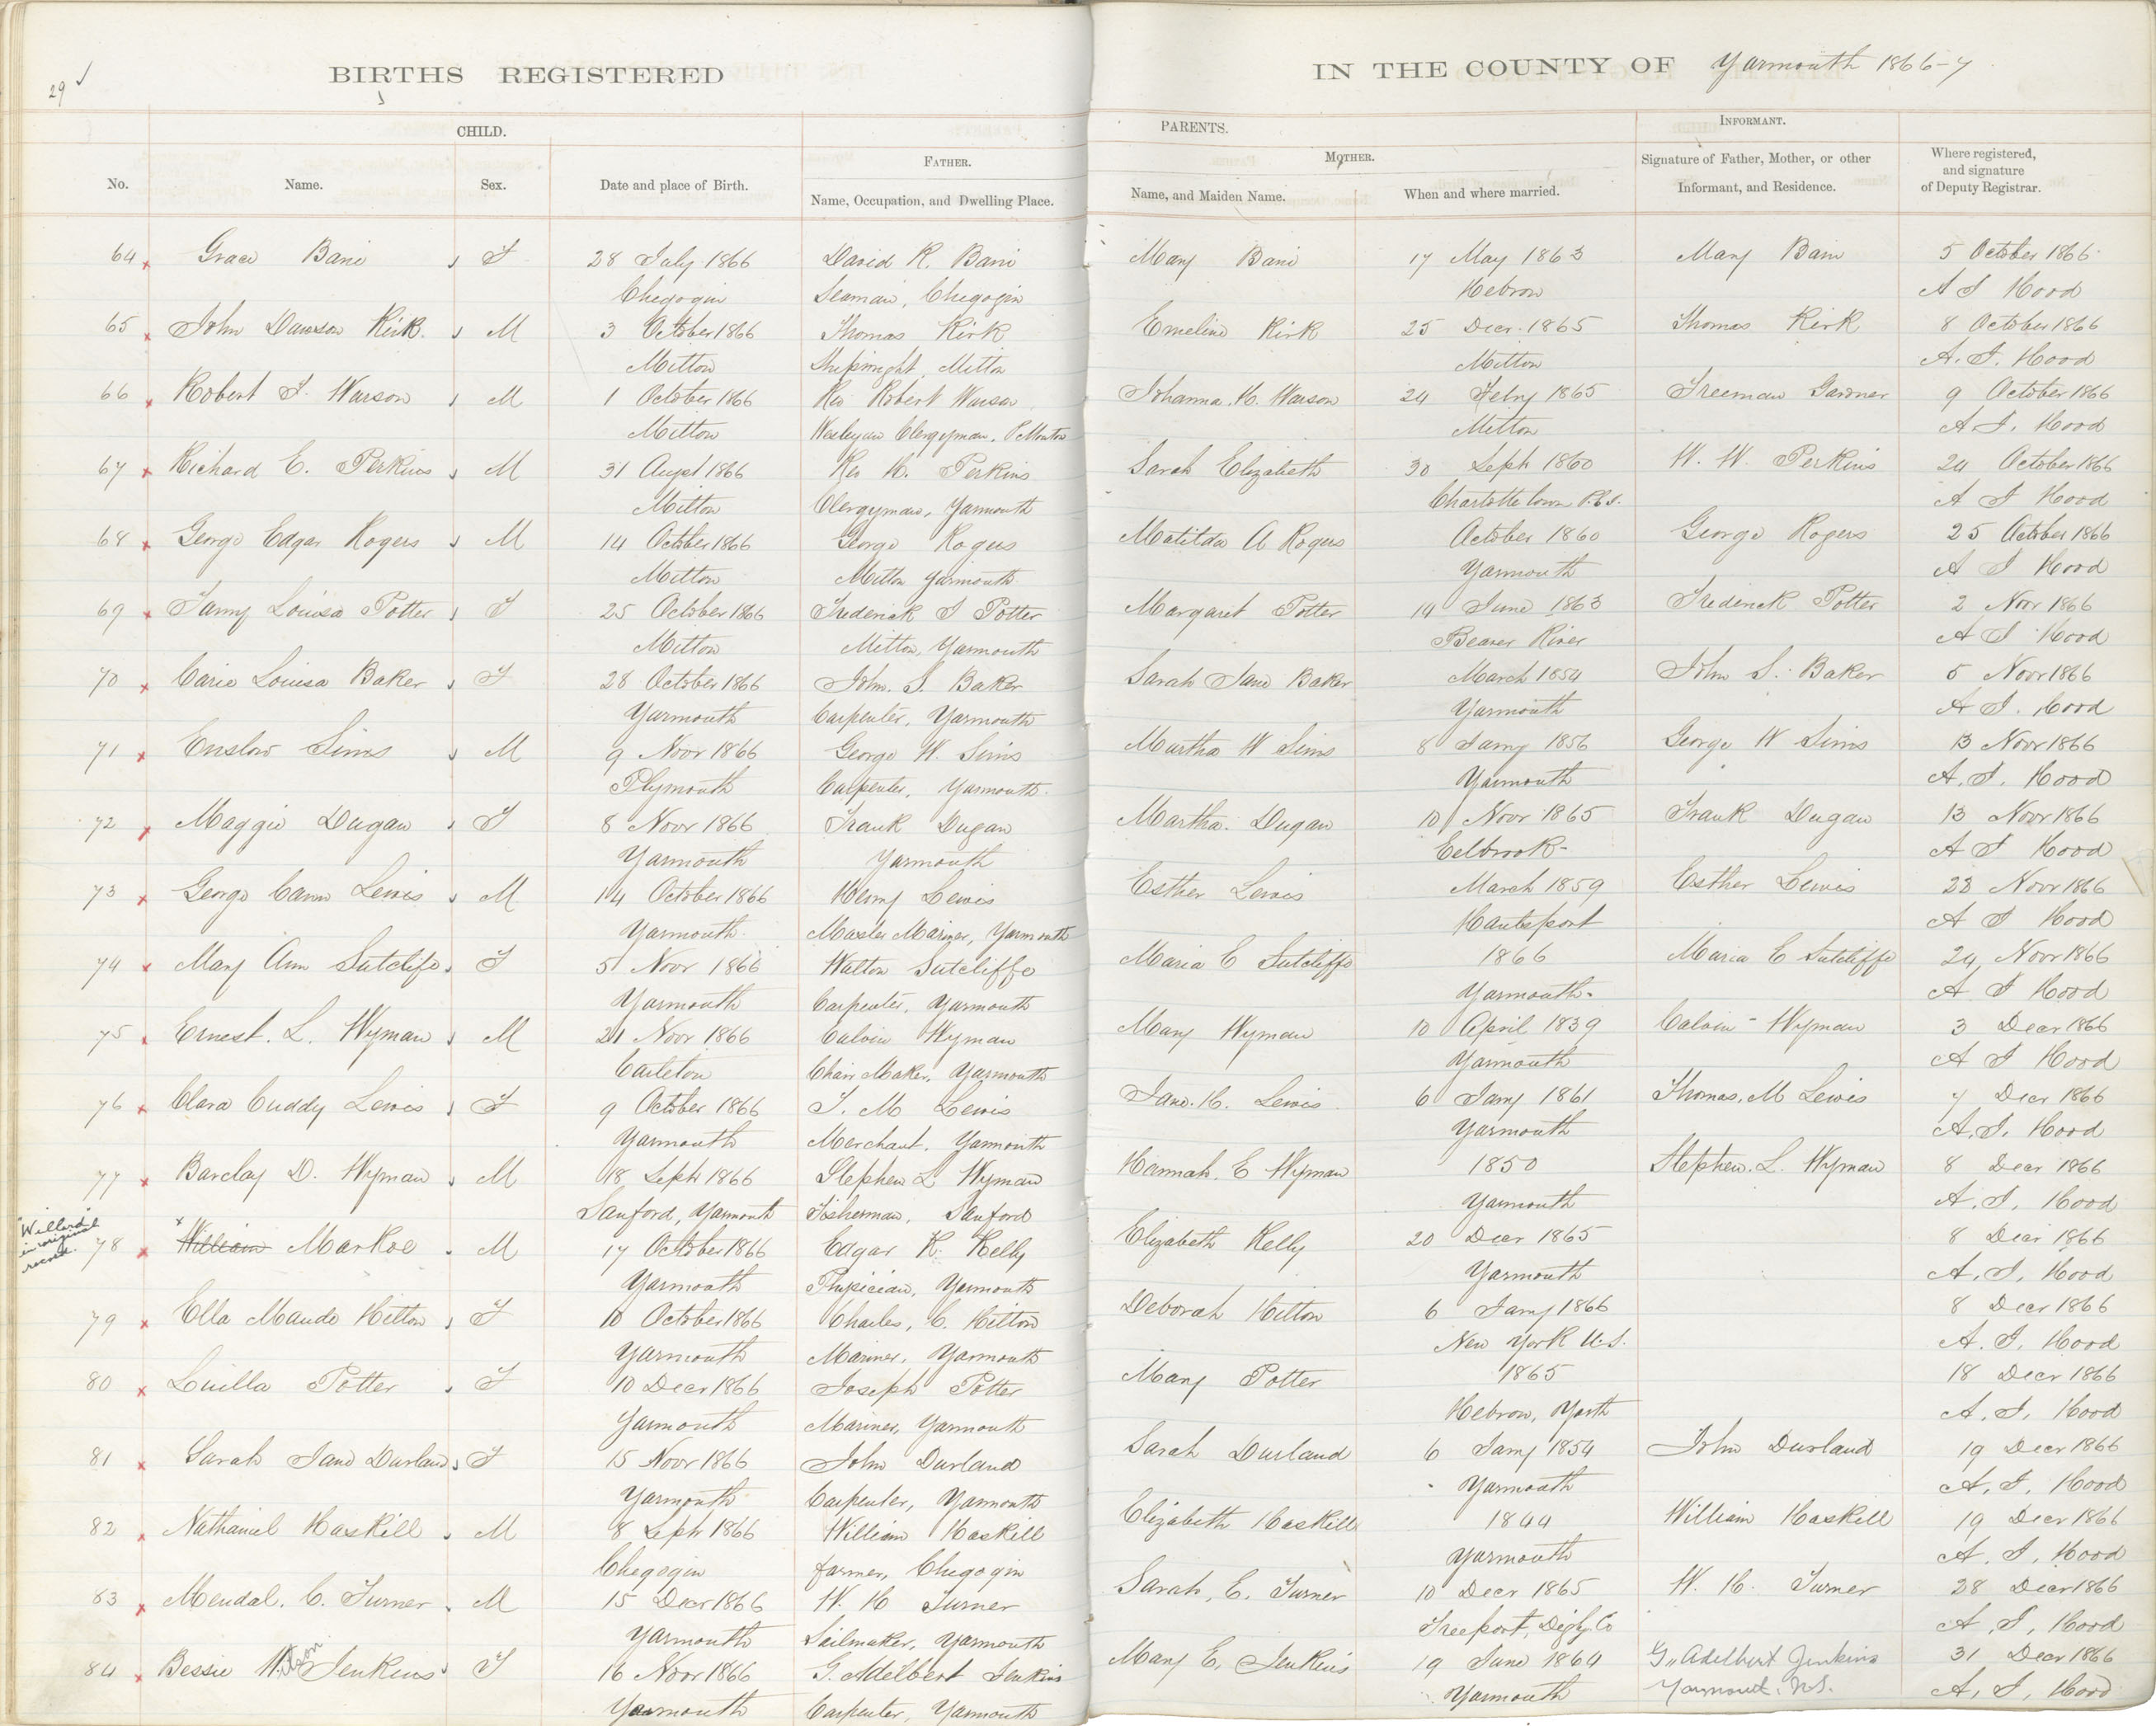 29 ✓
BIRTHS REGISTERED
IN THE COUNTY OF Yarmouth 1866-7
CHILD.
PARENTS.
INFORMANT.
FATHER.
MOTHER.
No.
Name.
Sex.
Date and place of Birth.
Name, Occupation, and Dwelling Place.
Name, and Maiden Name.
When and where married.
Signature of Father, Mother, or other
Informant, and Residence.
Where registered,
and signature
of Deputy Registrar.
64 Grace Bain F 28 July 1866 David R. Bain Mary Bain 17 May 1863 Mary Bain 5 October 1866
Chegogin Seaman, Chegogin Hebron A J Hood
65 John Dawson Kirk. M 3 October 1866 Thomas Kirk Emeline Kirk 25 Decr. 1865 Thomas Kirk 8 October 1866
Milton Shipwright, Milton Milton A. J. Hood
66 Robert F. Wasson M 1 October 1866 Rev Robert Wasson Johanna. H. Wasson 24 Feby 1865 Freeman Gardner 9 October 1866
Milton Wesleyan Clergyman. Milton A J. Hood
67 Richard E. Perkins M 31 Augst 1866 Rev H. Perkins Sarah Elizabeth 30 Sept 1860 W. W. Perkins 24 October 1866
Milton Clergyman, Yarmouth Charlottetown P.E.I. A J Hood
68 George Edgar Rogers M 14 October 1866 George Rogers Matilda A Rogers October 1860 George Rogers 25 October 1866
Milton Milton Yarmouth Yarmouth A J Hood
69 Fanny Louisa Potter F 25 October 1866 Frederick J Potter Margaret Potter 14 June 1863 Frederick Potter 2 Novr 1866
Milton Milton, Yarmouth Beaver River A J Hood
70 Carie Louisa Baker F 28 October 1866 John. S. Baker Sarah Jane Baker March 1854 John S. Baker 5 Novr 1866
Yarmouth Carpenter, Yarmouth Yarmouth A J. Hood
71 Enslow Sims M 9 Novr 1866 George W. Sims Martha W Sims 8 Jany 1856 George W Sims 13 Novr 1866
Plymouth Carpenter, Yarmouth. Yarmouth A. J. Hood
72 Maggie Dugan F 8 Novr 1866 Frank Dugan Martha. Dugan 10 Novr 1865 Frank Dugan 13 Novr 1866
Yarmouth Yarmouth Eelbrook- A J Hood
73 George Cann Lewis M 14 October 1866 Henry Lewis Esther Lewis March 1859 Esther Lewis 23 Novr 1866
Yarmouth. Master Mariner, Yarmouth Hantsport A J Hood
74 Mary Ann Sutcliffe F 5 Novr 1866 Walton Sutcliffe Maria E Sutcliffe 1866 Maria E Sutcliffe 24 Novr 1866
Yarmouth Carpenter, Yarmouth Yarmouth. A J Hood
75 Ernest. L. Wyman M 21 Novr 1866 Calvin Wyman Mary Wyman 10 April 1839 Calvin Wyman 3 Decr 1866
Carleton Chair Maker, Yarmouth Yarmouth A J Hood
76 Clara Cuddy Lewis F 9 October 1866 T. M Lewis Jane. H. Lewis 6 Jany 1861 Thomas. M Lewis 7 Decr 1866
Yarmouth Merchant, Yarmouth Yarmouth A. J. Hood
77 Barclay D. Wyman M 18 Sept 1866 Stephen L Wyman Hannah. E Wyman 1850 Stephen. L. Wyman 8 Decr 1866
Sanford, Yarmouth Fisherman, Sanford Yarmouth A. J. Hood
"Willard"
in original
record.
78 William Markoe M 17 October 1866 Edgar K. Kelly Elizabeth Kelly 20 Decr 1865 8 Decr 1866
Yarmouth Physician, Yarmouth Yarmouth A. J. Hood
79 Ella Maude Hilton F 10 October 1866 Charles, C. Hilton Deborah Hilton 6 Jany 1866 8 Decr 1866
Yarmouth Mariner, Yarmouth New York U.S. A. J. Hood
80 Luilla Potter F 10 Decr 1866 Joseph Potter Mary Potter 1865 18 Decr 1866
Yarmouth Mariner, Yarmouth Hebron, Yarth A. J. Hood
81 Sarah Jane Durland F 15 Novr 1866 John Durland Sarah Durland 6 Jany 1854 John Durland 19 Decr 1866
Yarmouth Carpenter, Yarmouth Yarmouth A. J. Hood
82 Nathaniel Haskill M 8 Sept 1866 William Haskill Elizabeth Haskill 1844 William Haskell 19 Decr 1866
Chegogin farmer, Chegogin Yarmouth A. J. Hood
83 Mendal. C. Turner M 15 Decr 1866 W. H Turner Sarah, E. Turner 10 Decr 1865 W. H. Turner 28 Decr 1866
Yarmouth Sailmaker, Yarmouth Freeport, Digby Co A. J. Hood
84 Bessie Jenkins F 16 Novr 1866 G. Adelbert Jenkins Mary E, Jenkins 19 June 1864 G. Adelbert Jenkins 31 Decr 1866
Yarmouth Carpenter, Yarmouth Yarmouth Yarmouth. N.S. A. J. Hood